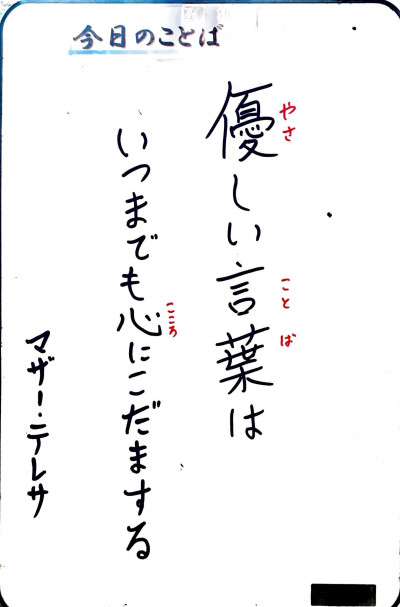 今日のことば
優しい言葉は
やさ
ことば
いつまでも心にこだまする
こころ
マザー・テレサ